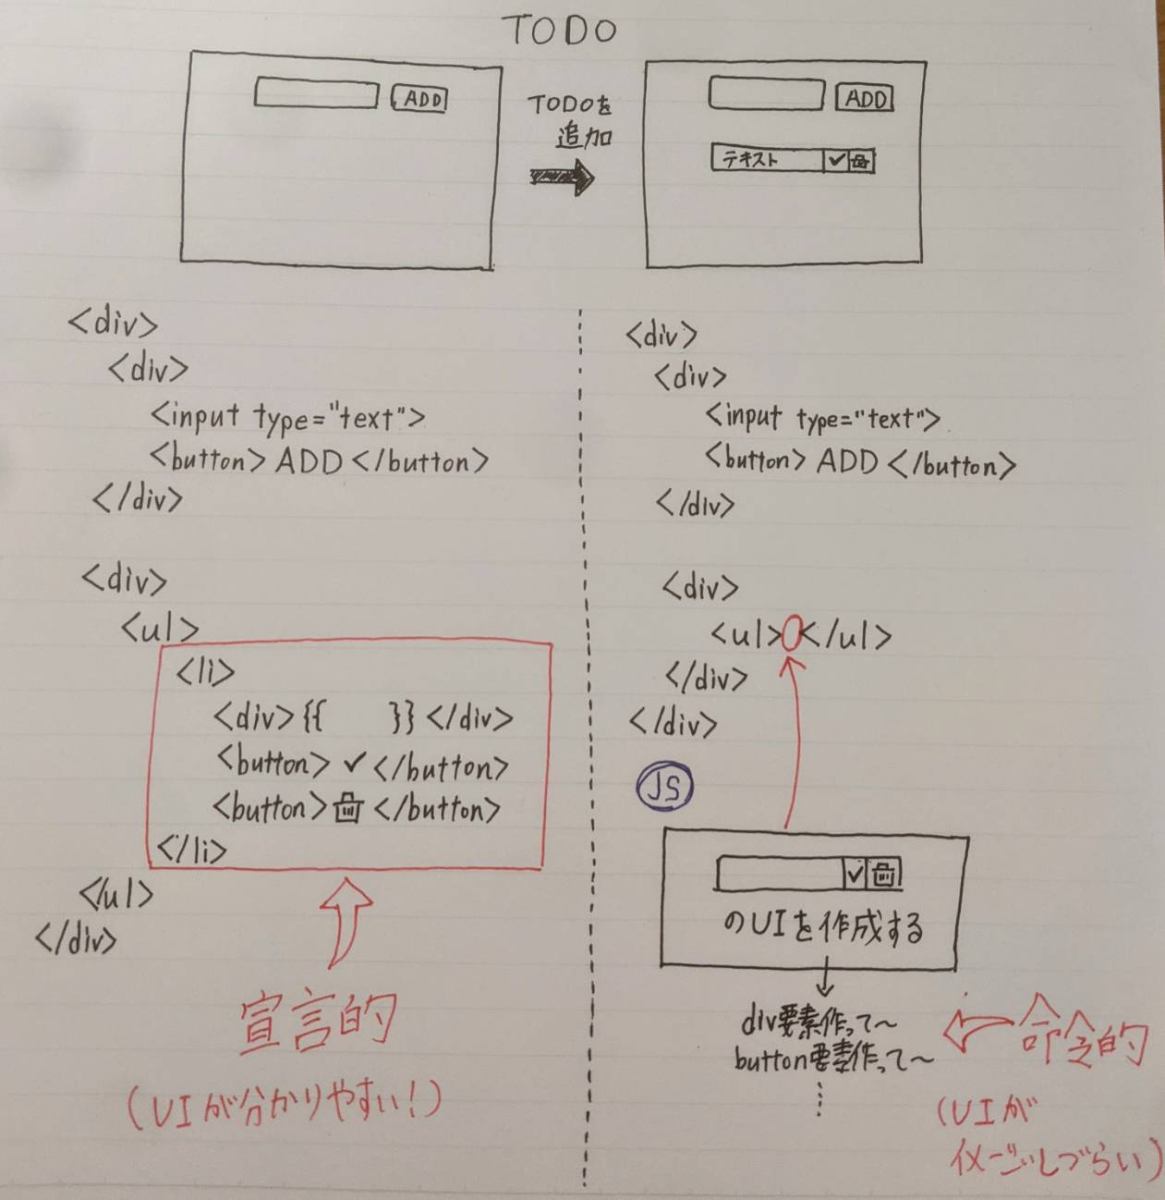 TODO
ADD
TODOを
追加
ADD
テキスト
<div>
<div>
<input type="text">
<button> ADD </button>
</div>
<div>
<ul>
<li>
<div>{{ }}</div>
<button>✓</button>
<button></button>
</li>
</ul>
</div>
宣言的
(UIが分かりやすい!)
<div>
<div>
<input type="text">
<button> ADD </button>
</div>
<div>
<ul></ul>
</div>
</div>
JS
のUIを作成する
div要素作って〜
button要素作って〜
⋮
命令的
(UIが
イメージしづらい)